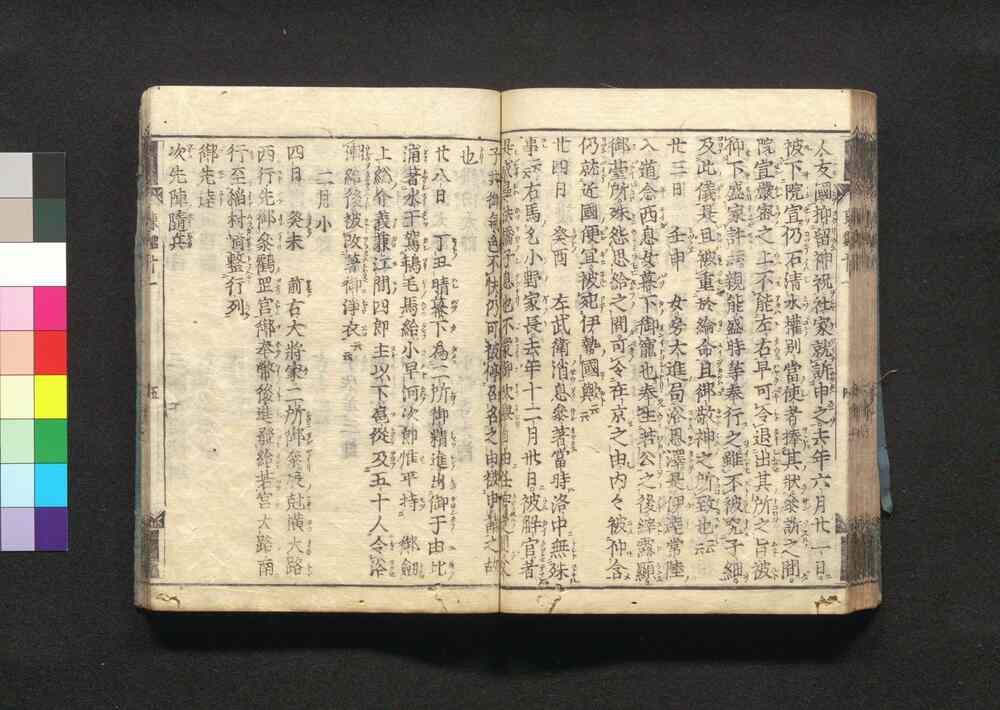 人友國抑留神祝社家就訴申之去年六月廿一日
被下院宣仍石清水權別當使者捧其状參訴之間
院宣嚴密之上不能左右早可令退出其所之旨被
仰下盛家許云親能盛時等奉行之雖不被究子細
及此儀是且被重於綸命且御敬神之所致也云云
廿三日 壬申 女房大進局浴恩澤是伊達常陸
入道念西息女幕下御寵也奉生若公之後縡露顯
御臺所殊怨思給之間可令在京之由内々被仰含
仍就近國便宜被宛伊勢國歟云云
廿四日 癸酉 左武衛消息參著當時洛中無殊
事云云右馬允小野家長去年十二月廿日被辞官者
也
廿八日 丁丑 晴幕下為二所御精進出御于由比
浦著水干駕鵇毛馬給小早河次郎惟平持 御劔
上総介義兼江間四郎主以下扈從及五十人令浴
潮給後被改著御浄衣云云
二月小
四日 癸未 前右大將家二所御參
横大路
西行先御參鶴岡宮御奉幣後進發給若宮大路南
行至稲村前整行列
御先達
次先陣隨兵